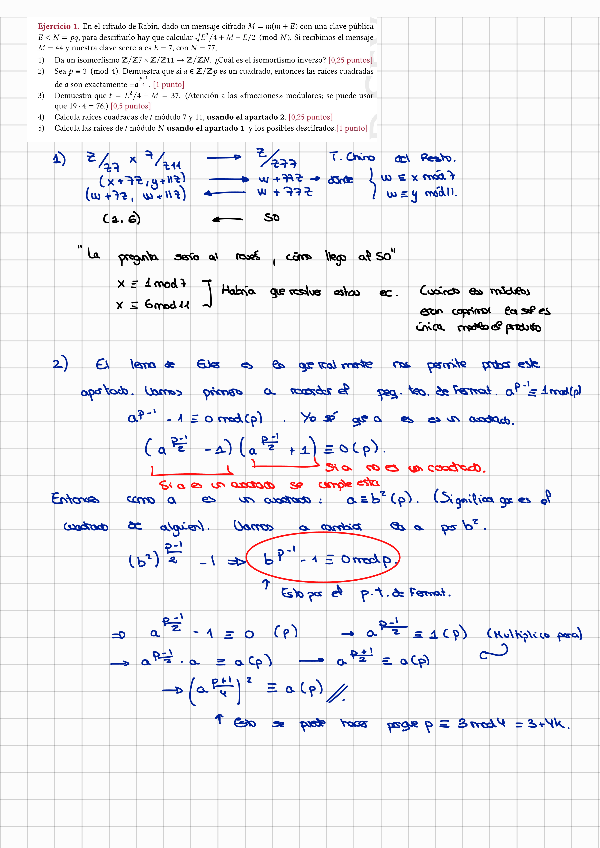 Ejercicio 1. En el cifrado de Rabin, dado un mensaje cifrado M = m(m + B) con una clave pública
B < N = pq, para descifrarlo hay que calcular √B²/4 + M − B/2 (mod N). Si recibimos el mensaje
M = 44 y nuestra clave secreta es B = 7, con N = 77,
1) Da un isomorfismo Z/Z7 × Z/Z11 → Z/ZN. ¿Cuál es el isomorfismo inverso? [0,25 puntos]
2) Sea p ≡ 3 (mod 4). Demuestra que si a ∈ Z/Zp es un cuadrado, entonces las raíces cuadradas
de a son exactamente ±a^(p+1)/4. [1 punto]
3) Demuestra que t = B²/4 + M = 37. (Atención a las «fracciones» modulares; se puede usar
que 19 · 4 = 76.) [0,5 puntos]
4) Calcula raíces cuadradas de t módulo 7 y 11, usando el apartado 2. [0,25 puntos]
5) Calcula las raíces de t módulo N usando el apartado 1 y los posibles descifrados. [1 punto]
1) Z/Z7 × Z/Z11 → Z/Z77 T. Chino del Resto.
(x+7Z, y+11Z) → w+77Z → dónde { w ≡ x mód 7
(w+7Z, w+11Z) ← w+77Z w ≡ y mód 11.
(2, 6) ← 50
"La pregunta sería al revés, cómo llego al 50"
x ≡ 1 mod 7
x ≡ 6 mod 11 ] Habría que resolver estas ec. Cuando los módulos
son coprimos la sol es
única módulo el producto
2) El lema de es es que realmente nos permite probar este
apartado. Vamos primero a recordar el peq. teo. de Fermat. a^p-1 ≡ 1 mod(p)
a^p-1 - 1 ≡ 0 mod(p). Yo sé que a es es un cuadrado.
(a^(p-1)/2 - 1)(a^(p-1)/2 + 1) ≡ 0 (p).
Si a no es un cuadrado.
Si a es un cuadrado se cumple esta
Entonces como a es un cuadrado: a ≡ b² (p). (Significa que es el
cuadrado de alguien). Vamos a cambiar esa a por b².
(b²)^(p-1)/2 - 1 ⇒ b^p-1 - 1 ≡ 0 mod p.
↑ Esto por el p.t. de Fermat.
⇒ a^(p-1)/2 - 1 ≡ 0 (p) → a^(p-1)/2 ≡ 1 (p) (Multiplico por a)
→ a^(p-1)/2 · a ≡ a (p) → a^(p+1)/2 ≡ a (p)
→ (a^(p+1)/4)² ≡ a (p) //.
↑ Esto se puede hacer porque p ≡ 3 mod 4 = 3+4k.